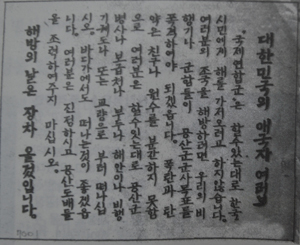 대한민국의 애국자 여러분
"국제연합군"은 할수있는대로 한국
시민에게 해를 가져오려고 하지않습니다.
여러분의 조국을 해방하려면 우리의 비
행기나 군함들이 공산군군사목표를
폭격하여야 되겠습니다. 폭탄과 탄
약은 친구나 원수를 분간하지 못함
으로 여러분은 할수있는대로 공산군
병사나 보급처나 부두나 해안이나 비행
기 계도나 또는 교량으로 부터 떠나십
시오. 바다가에서도 떠나는것이 좋겠습
니다. 여러분은 진정하시고 공산도배들
을 조력하여주지 마십시오.
해방의 날은 장차 올것입니다.